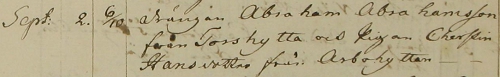 Sept: 2. 6/10 Drängen Abraham Abrahamsson
från Torshytta och Pigan Cherstin
Hansdotter från Arbohyttan